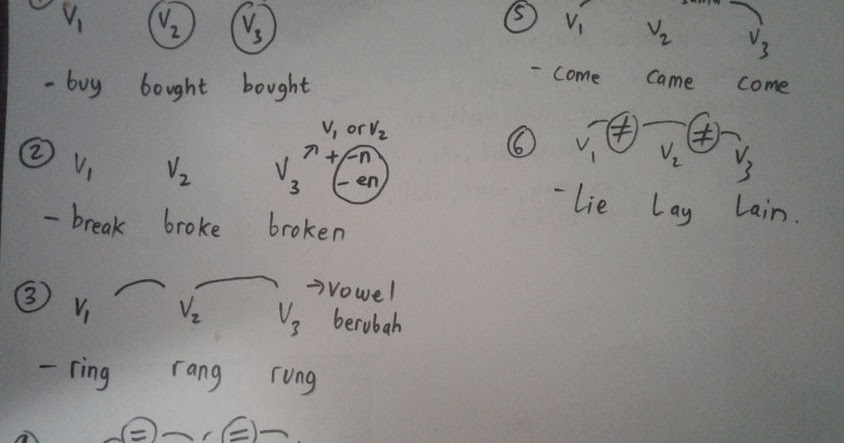 V₁ V₂ V₃
- buy bought bought
② V₁ V₂ V₃ ↗ + -n
V₁ or V₂
- en
- break broke broken
③ V₁ V₂ V₃ → Vowel
berubah
- ring rang rung
= =
⑤ V₁ V₂ V₃
- come came come
⑥ V₁ ≠ V₂ ≠ V₃
- Lie Lay Lain.